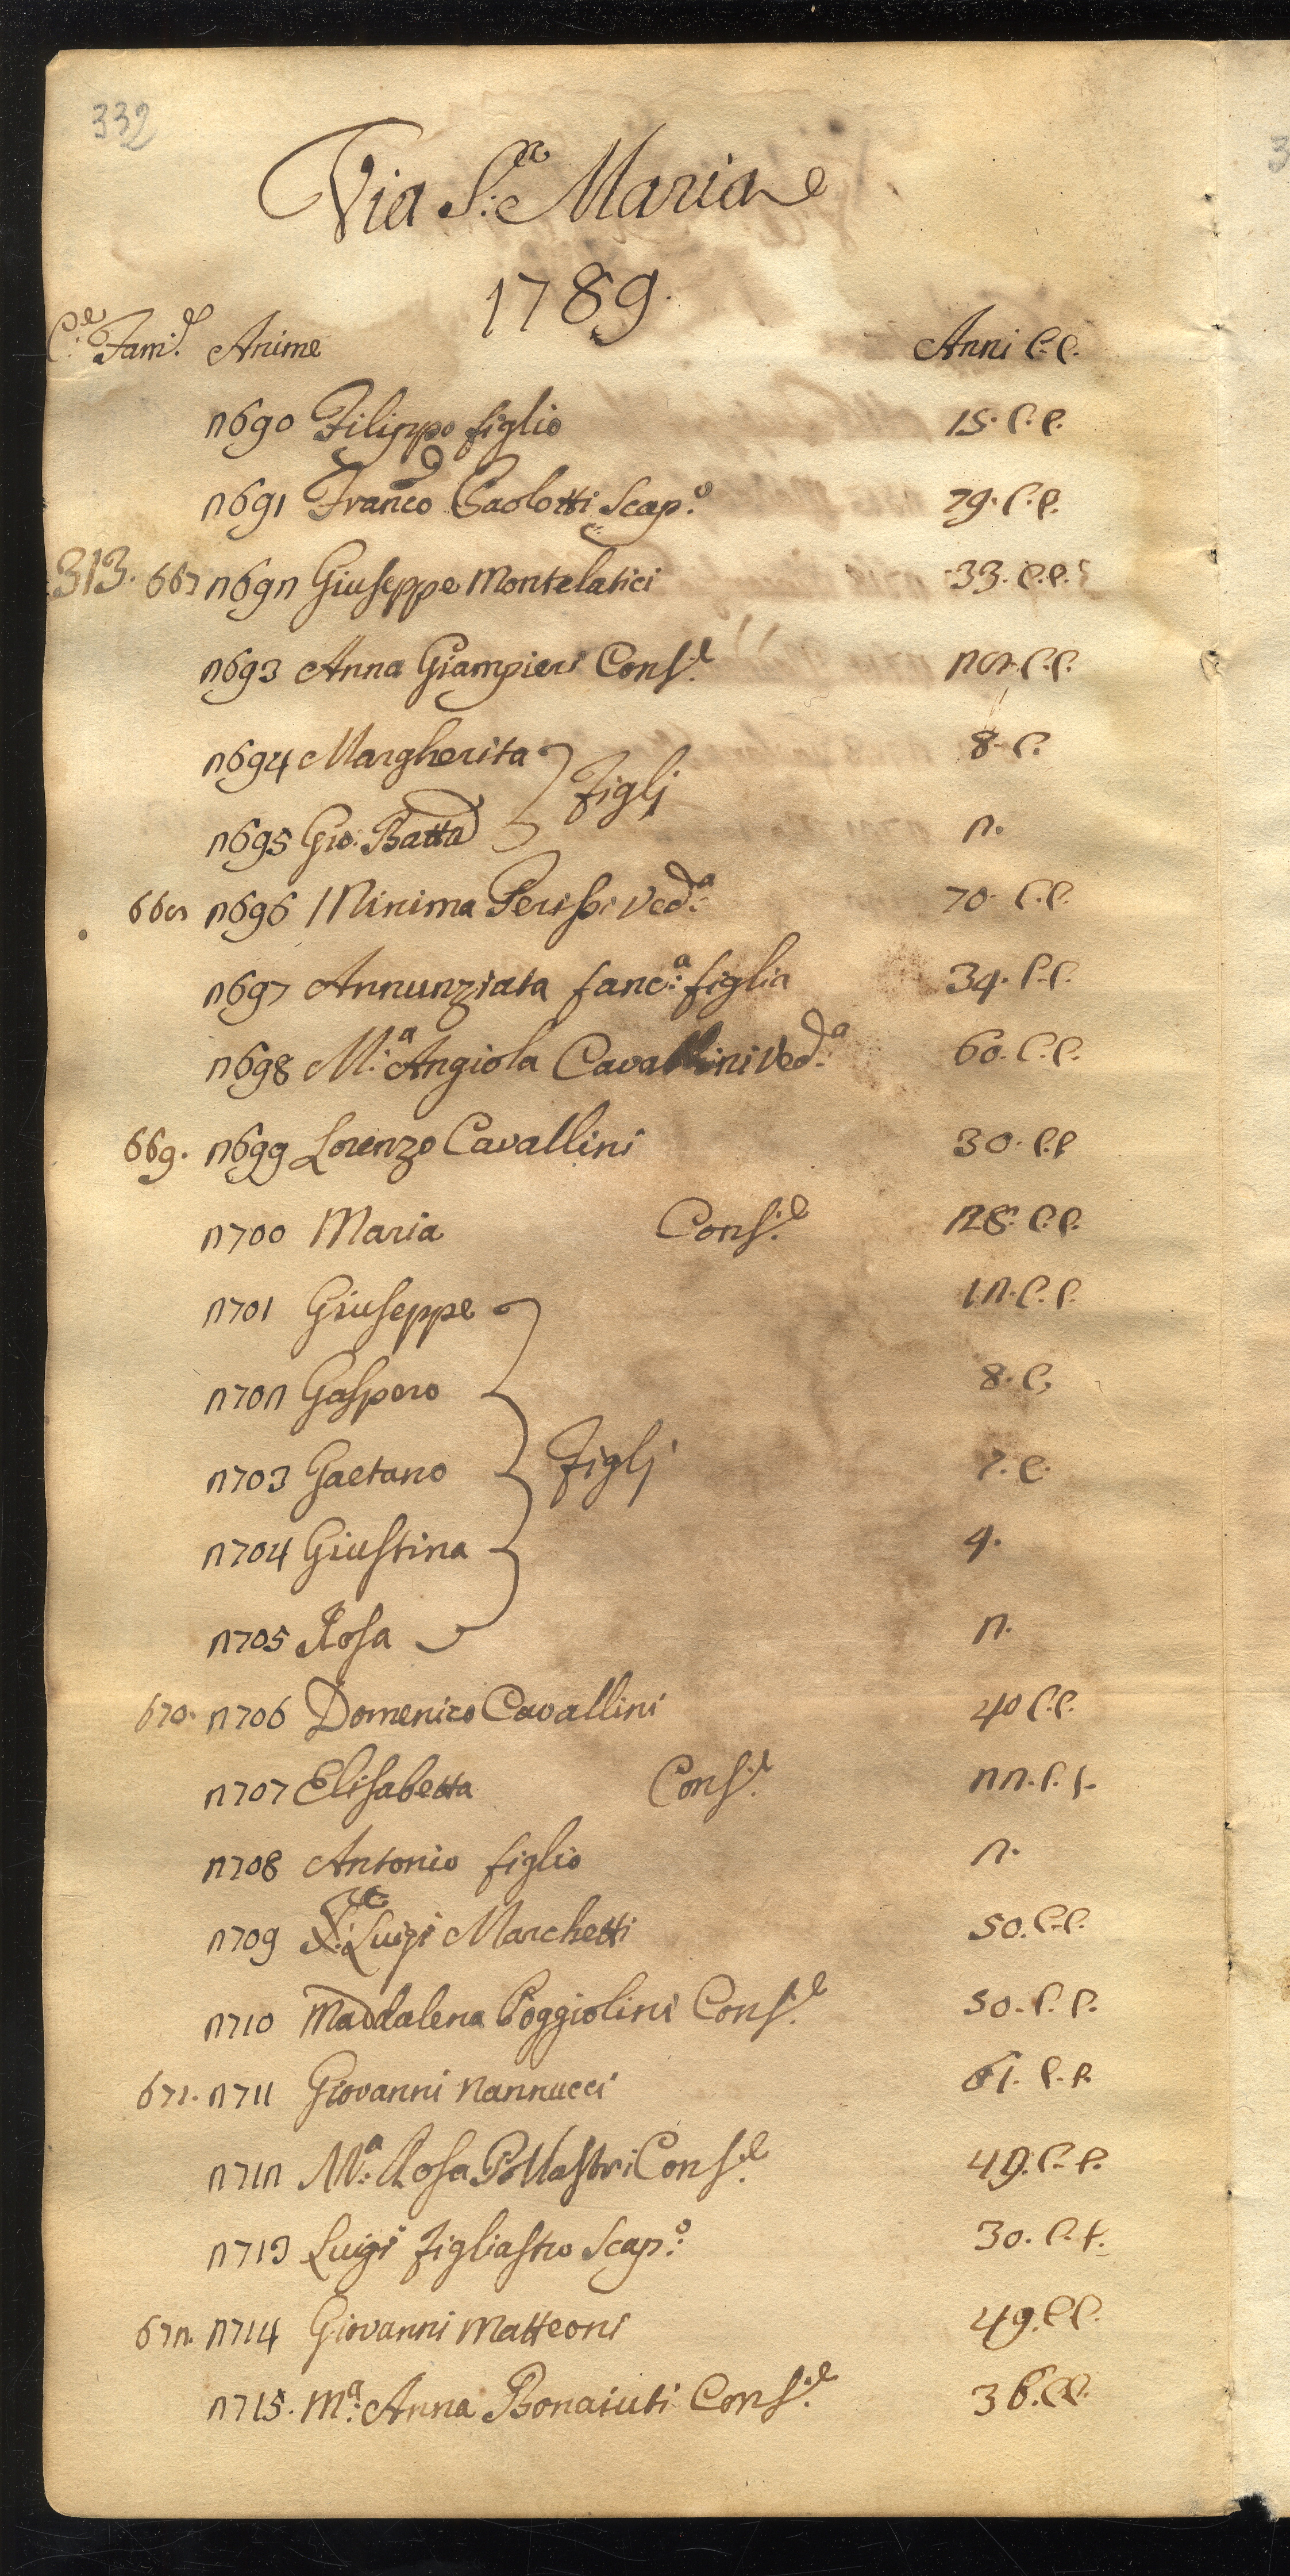 332
Via S.ta Maria
1789.
C.e Fam.e Anime Anni C.C.
2690 Filippo figlio 15. C.C.
2691 Franco Paolotti Scap.o 79. C.C.
313. 667 2692 Giuseppe Montelatici 33. C.C.
2693 Anna Giampieri Cons.e 28. C.C.
2694 Margherita 8. C.
Figlj
2695 Gio: Batta 2.
668 2696 Minima Perissi Ved.a 70. C.C.
2697 Annunziata fanc.a figlia 34. C.C.
2698 M.a Angiola Cavallini Ved.a 60. C.C.
669. 2699 Lorenzo Cavallini 30. C.C
2700 Maria Cons.e 28. C.C.
2701 Giuseppe 12. C.C.
2702 Gasparo 8. C.
2703 Gaetano Figlj 7. C.
2704 Giustina 4.
2705 Rosa 2.
670. 2706 Domenico Cavallini 40 C.C.
2707 Elisabetta Cons.e 22. C.C.
2708 Antonio figlio 2.
2709 Luigi Marchetti 50. C.C.
2710 Maddalena Poggiolini Cons.e 50. C.C.
671. 2711 Giovanni Nannucci 61. C.C.
2712 M.a Rosa Pollastri Cons.e 49. C.C.
2713 Luigi Figliastro Scap.o 30. C.C.
672. 2714 Giovanni Matteoni 49. C.C.
2715. M.a Anna Bonaiuti Cons.e 36. C.C.